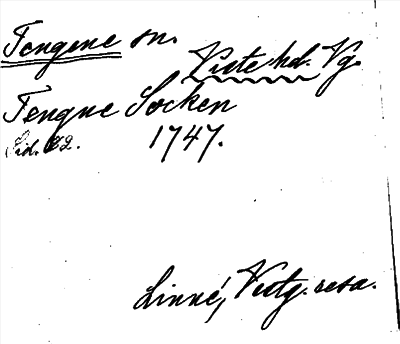 Tengene sn.
Viste hd. Vg.
Tengne Socken
Sid. 32. 1747.
Linné, Vestg. resa.